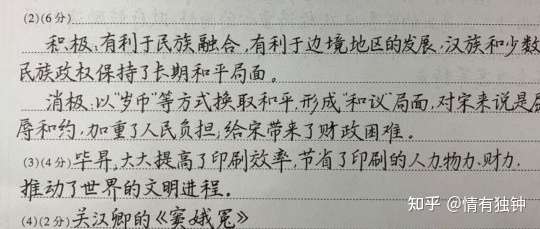 (2)(6分)
积极:有利于民族融合,有利于边境地区的发展,汉族和少数
民族政权保持了长期和平局面。
消极:以"岁币"等方式换取和平,形成"和议"局面,对宋来说是屈
辱和约,加重了人民负担,给宋带来了财政困难。
(3)(4分)毕昇,大大提高了印刷效率,节省了印刷的人力.物力.财力.
推动了世界的文明进程。
(4)(2分)关汉卿的《窦娥冤》
知乎 @情有独钟